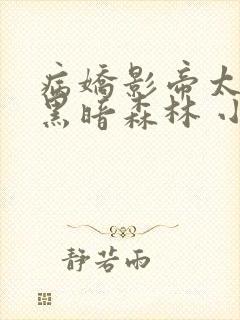 病嬌影帝太
黑暗森林 小
靜若雨